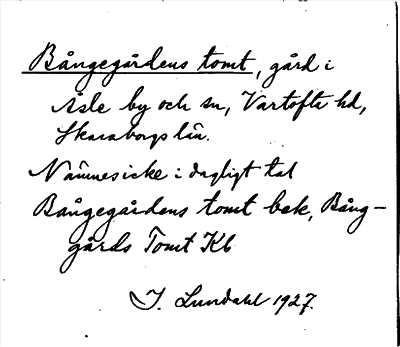 Bångegårdens tomt, gård i
Åsle by och sn, Vartofta hd,
Skaraborgs län.
Nämnes icke i dagligt tal
Bångegårdens tomt bek, Bång-
gårds Tomt Kb
I. Lundahl 1927.